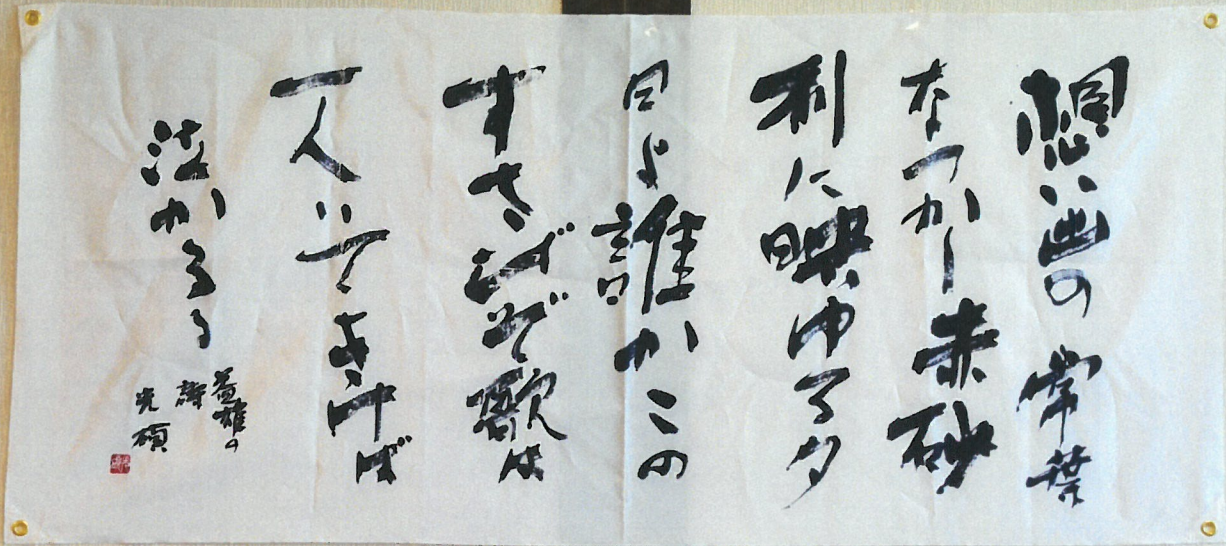 想い出の常葉
なつかし赤砂
利に映ゆる夕
日よ誰かこの
すさびぞ歌は
一人いてきけば
泣かるる
益雄の
詩
光碩